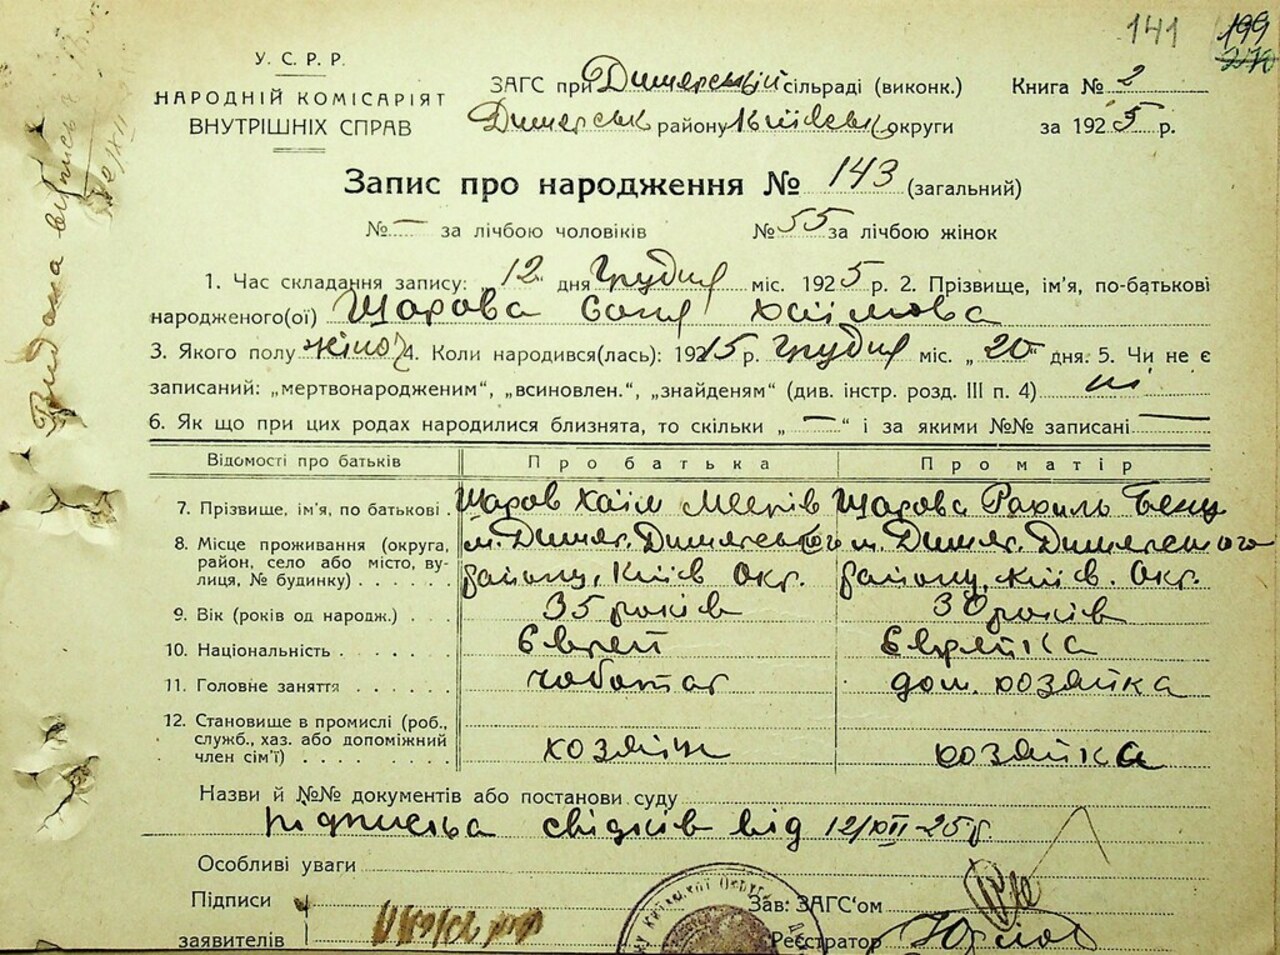 141 199
270
У.С.Р.Р.
НАРОДНІЙ КОМІСАРІЯТ
ВНУТРІШНІХ СПРАВ
ЗАГС при Димерській сільраді (виконк.)
Димерськ району Київськ округи
Книга № 2
за 1925 р.
Запис про народження № 143 (загальний)
№ — за лічбою чоловіків № 55 за лічбою жінок
1. Час складання запису: „12“ дня Грудня міс. 1925 р. 2. Прізвище, ім'я, по-батькові
народженого(ої) Щарова Соня Хаімова
3. Якого полу жіно 4. Коли народився(лась): 1915 р. Грудня міс. „20“ дня. 5. Чи не є
записаний: „мертвонародженим“, „всиновлен.“, „знайденям“ (див. інстр. розд. III п. 4) ні
6. Як що при цих родах народилися близнята, то скільки „—“ і за якими №№ записані —
Відомості про батьків Про батька Про матір
7. Прізвище, ім'я, по батькові . Щаров Хаім Щарова Рахиль Бенц
8. Місце проживання (округа, район, село або місто, вулиця, № будинку) . . . . . м. Димер. Димерського м. Димер. Димерського
району, Київ Окр. району, Київ. Окр.
9. Вік (років од народж.) . . . 35 років 30 років
10. Національність . . . . . . Єврей Єврейка
11. Головне заняття . . . . . . чоботар дом. хозяйка
12. Становище в промислі (роб., служб., хаз. або допоміжний член сім'ї) . . . . . . . хозяїн хозяйка
Назви й №№ документів або постанови суду
підписька свідків від 12/XII-25 р.
Особливі уваги
Підписи
заявителів
Зав: ЗАГС'ом
Реєстратор
Київської Округи
Видана випись